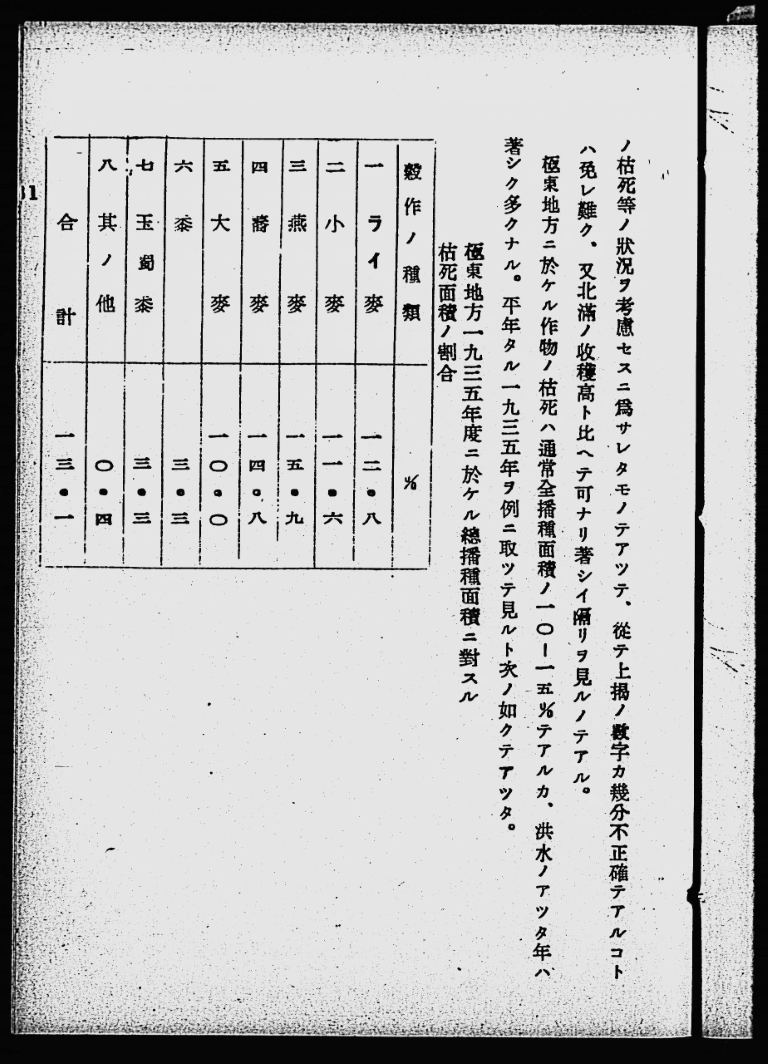 ノ枯死等ノ狀況ヲ考慮セスニ爲サレタモノテアツテ、從テ上揭ノ數字カ幾分不正確テアルコト
ハ免レ難ク、又北滿ノ收穫高ト比ヘテ可ナリ著シイ隔リヲ見ルノテアル。
極東地方ニ於ケル作物ノ枯死ハ通常全播種面積ノ一〇ー一五%テアルカ、洪水ノアツタ年ハ
著シク多クナル。平年タル一九三五年ヲ例ニ取ツテ見ルト次ノ如クテアツタ。
極東地方一九三五年度ニ於ケル總播種面積ニ對スル
枯死面積ノ割合
穀作ノ種類 %
一 ライ麥 一二・八
二 小麥 一一・六
三 燕麥 一五・九
四 蕎麥 一四・八
五 大麥 一〇・〇
六 黍 三・三
七 玉蜀黍 三・三
八 其ノ他 〇・四
合計 一三・一